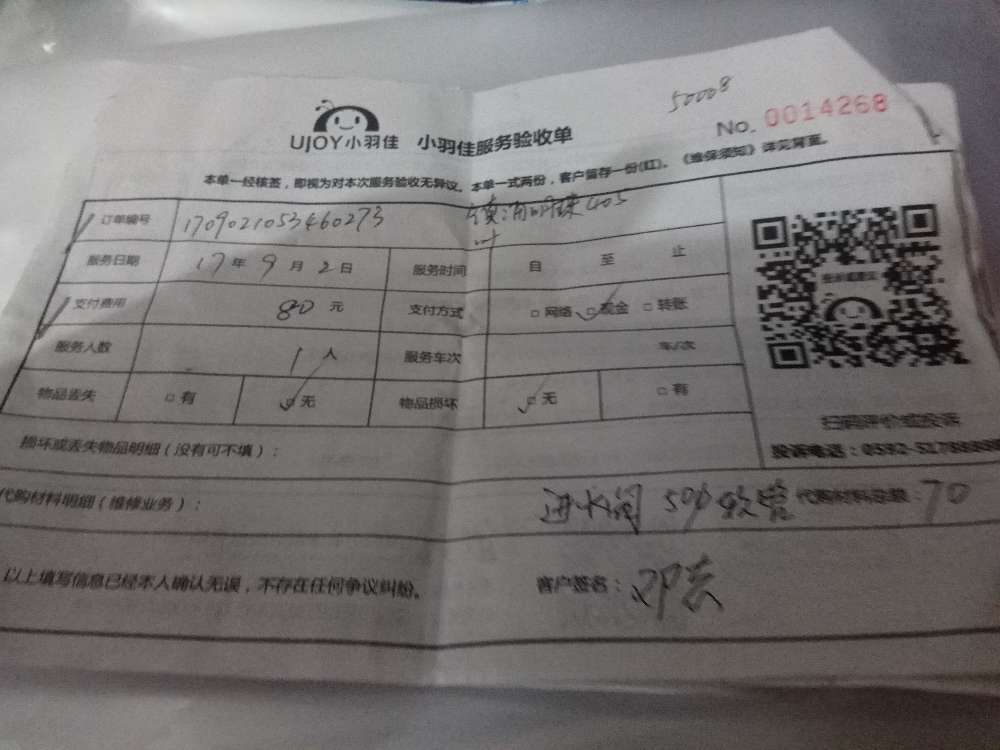 50008
No. 0014268
UJOY小羽佳 小羽佳服务验收单
本单一经核签，即视为对本次服务验收无异议。本单一式两份，客户留存一份(红)。《维保须知》详见背面。
订单编号 1709021053460273 405
服务日期 17年9月2日 服务时间 自 至 止
支付费用 80元 支付方式 □网络 □现金 □转账
服务人数 1人 服务车次 车/次
物品丢失 □有 □无 物品损坏 □无 □有
扫码评价或投诉
损坏或丢失物品明细（没有可不填）：
投诉电话：0592-
代购材料明细（维修业务）： 进水阀 50 软管 代购材料总额：70
以上填写信息已经本人确认无误，不存在任何争议纠纷。 客户签名：